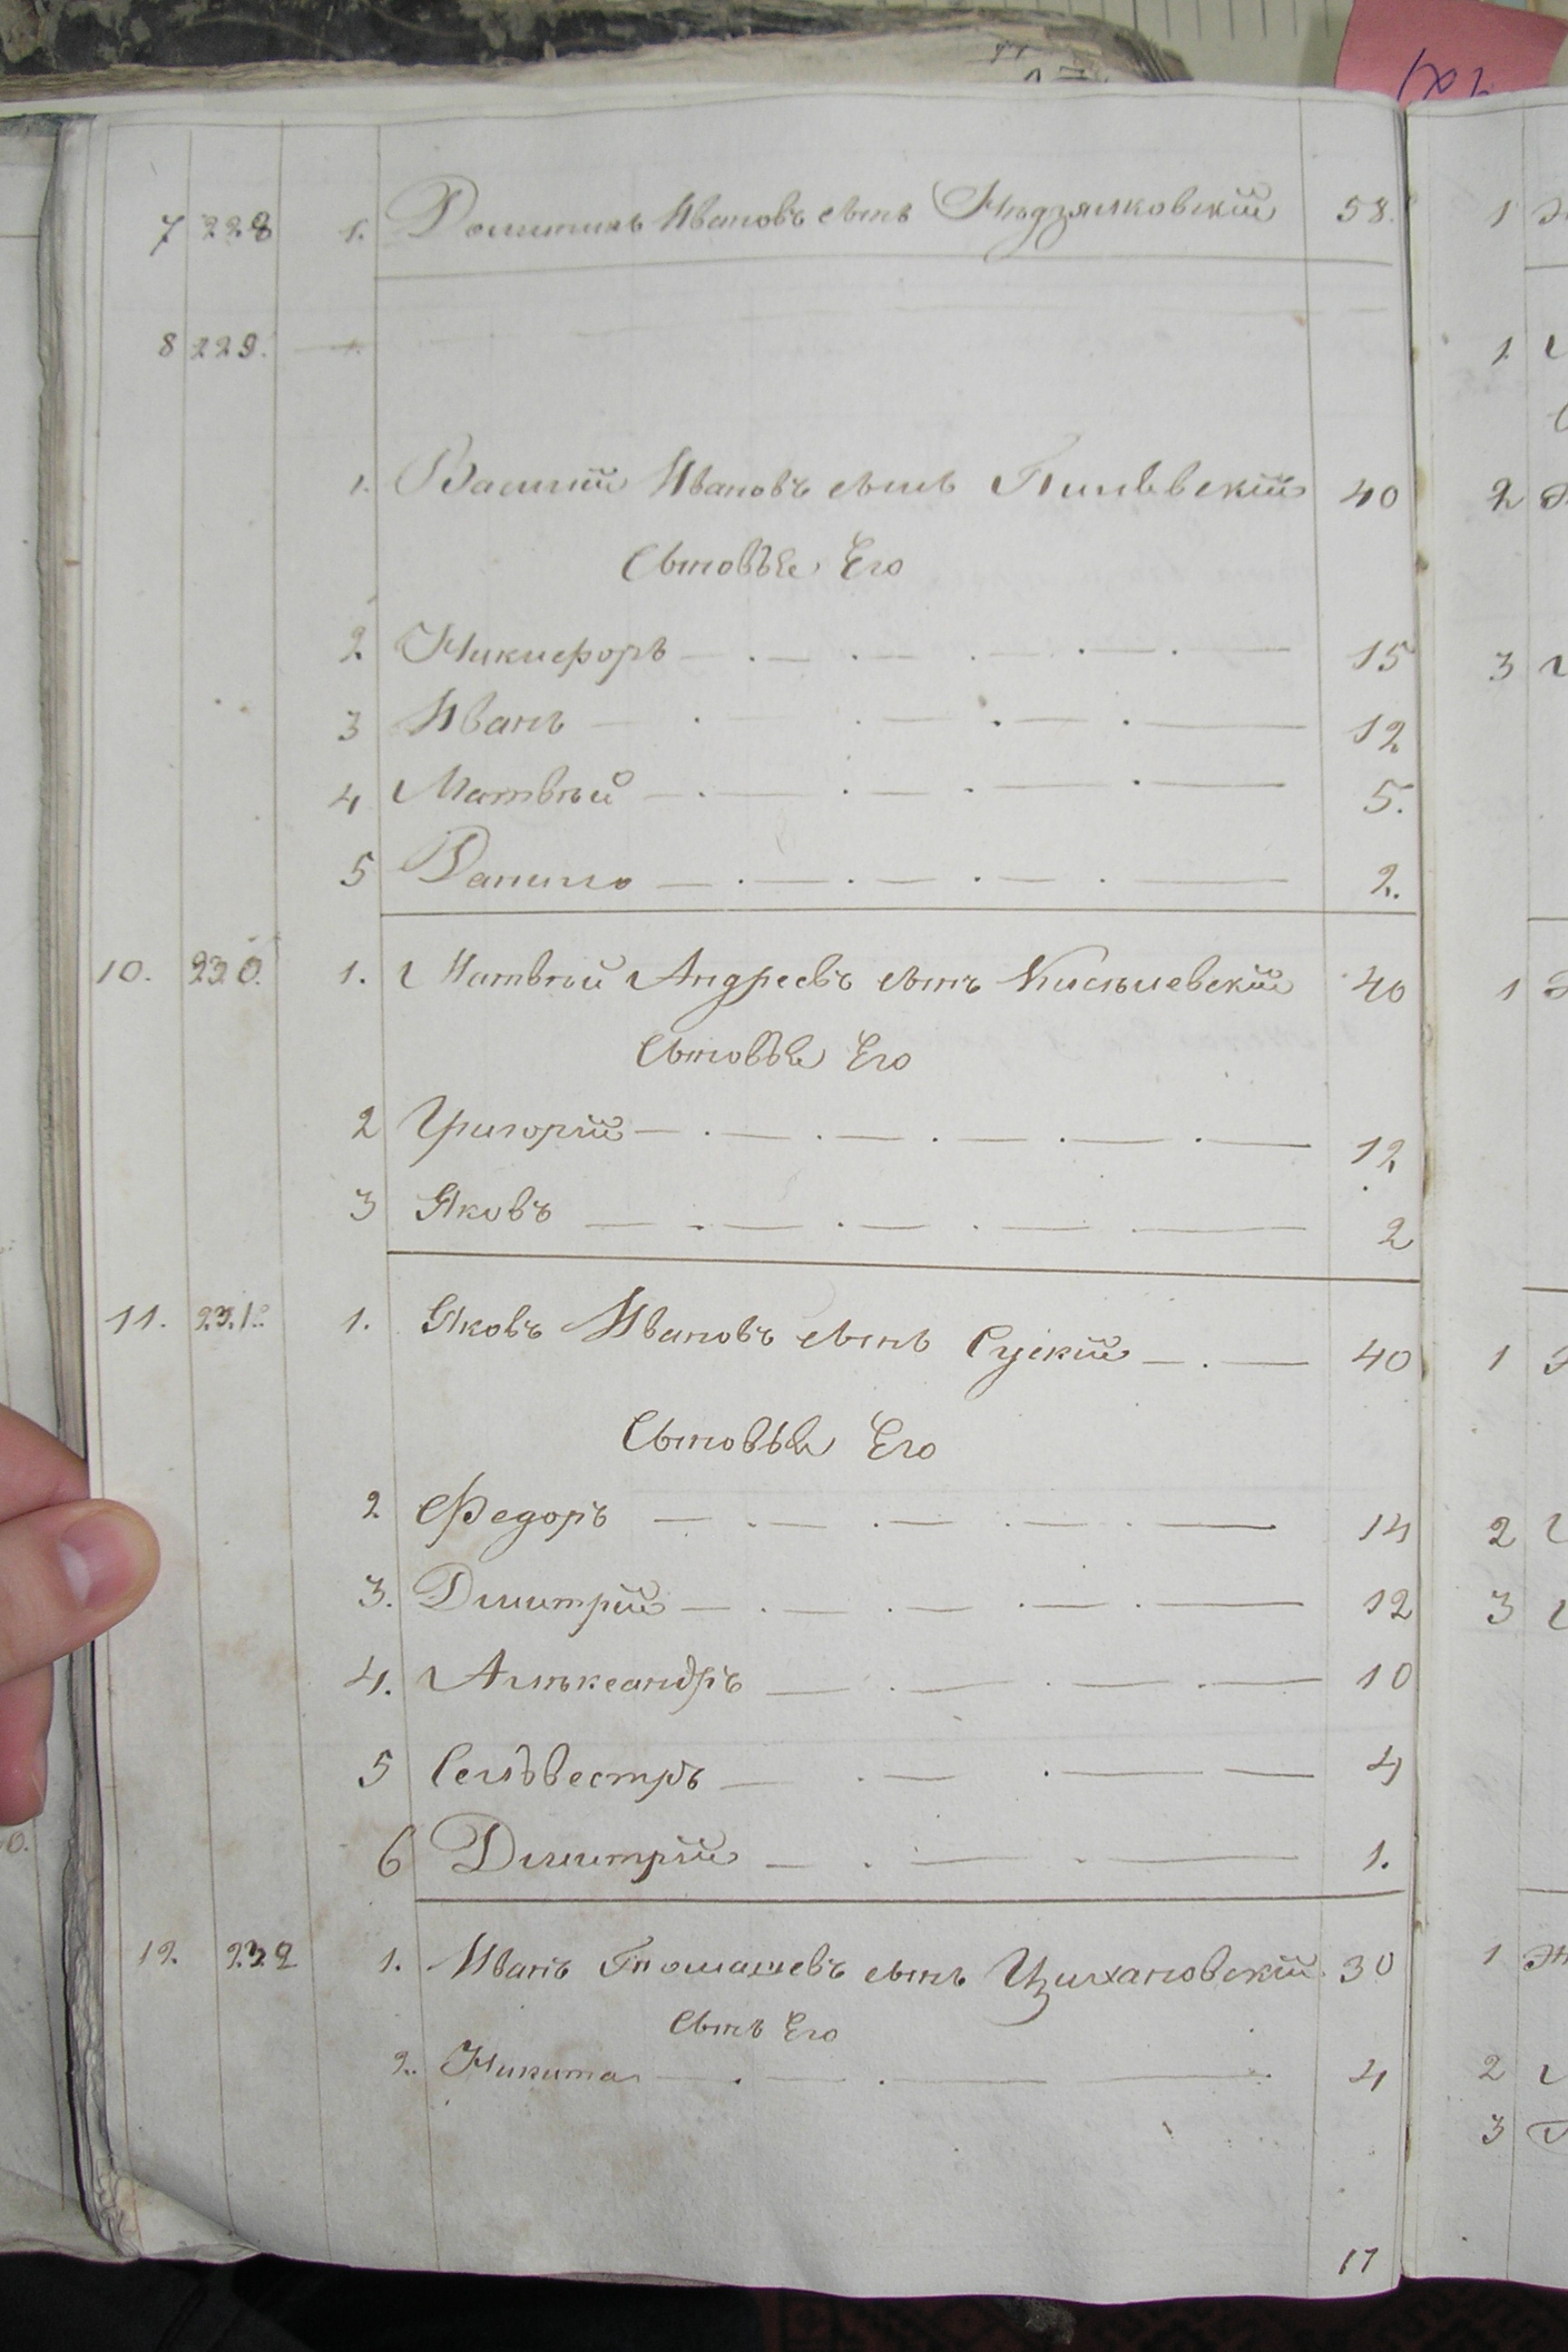 7 228 1. Домининъ Ивановъ сынъ Нѣдзялковскій 58.
8 229. 1.
1. Василій Ивановъ сынъ Пилѣвскій 40
Сыновьѣ Его
2. Никифоръ 15
3 Иванъ 12
4 Матвѣй 5.
5 Данило 2.
10. 230. 1. Матвѣй Андреевъ сынъ Кисѣлевскій 40
Сыновьѣ Его
2 Григорій 12
3 Яковъ 2
11. 231. 1. Яковъ Ивановъ сынъ Сускій 40
Сыновьѣ Его
2 Федоръ 14
3. Дмитрій 12
4. Алѣксандръ 10
5 Селъвестръ 4
6 Дмитрій 1.
12. 232 1. Иванъ Томашевъ сынъ Цихановскій 30
Сынъ Его
2. Никита 4
17
1
1
2
3
1
1
2
3
1
2
3